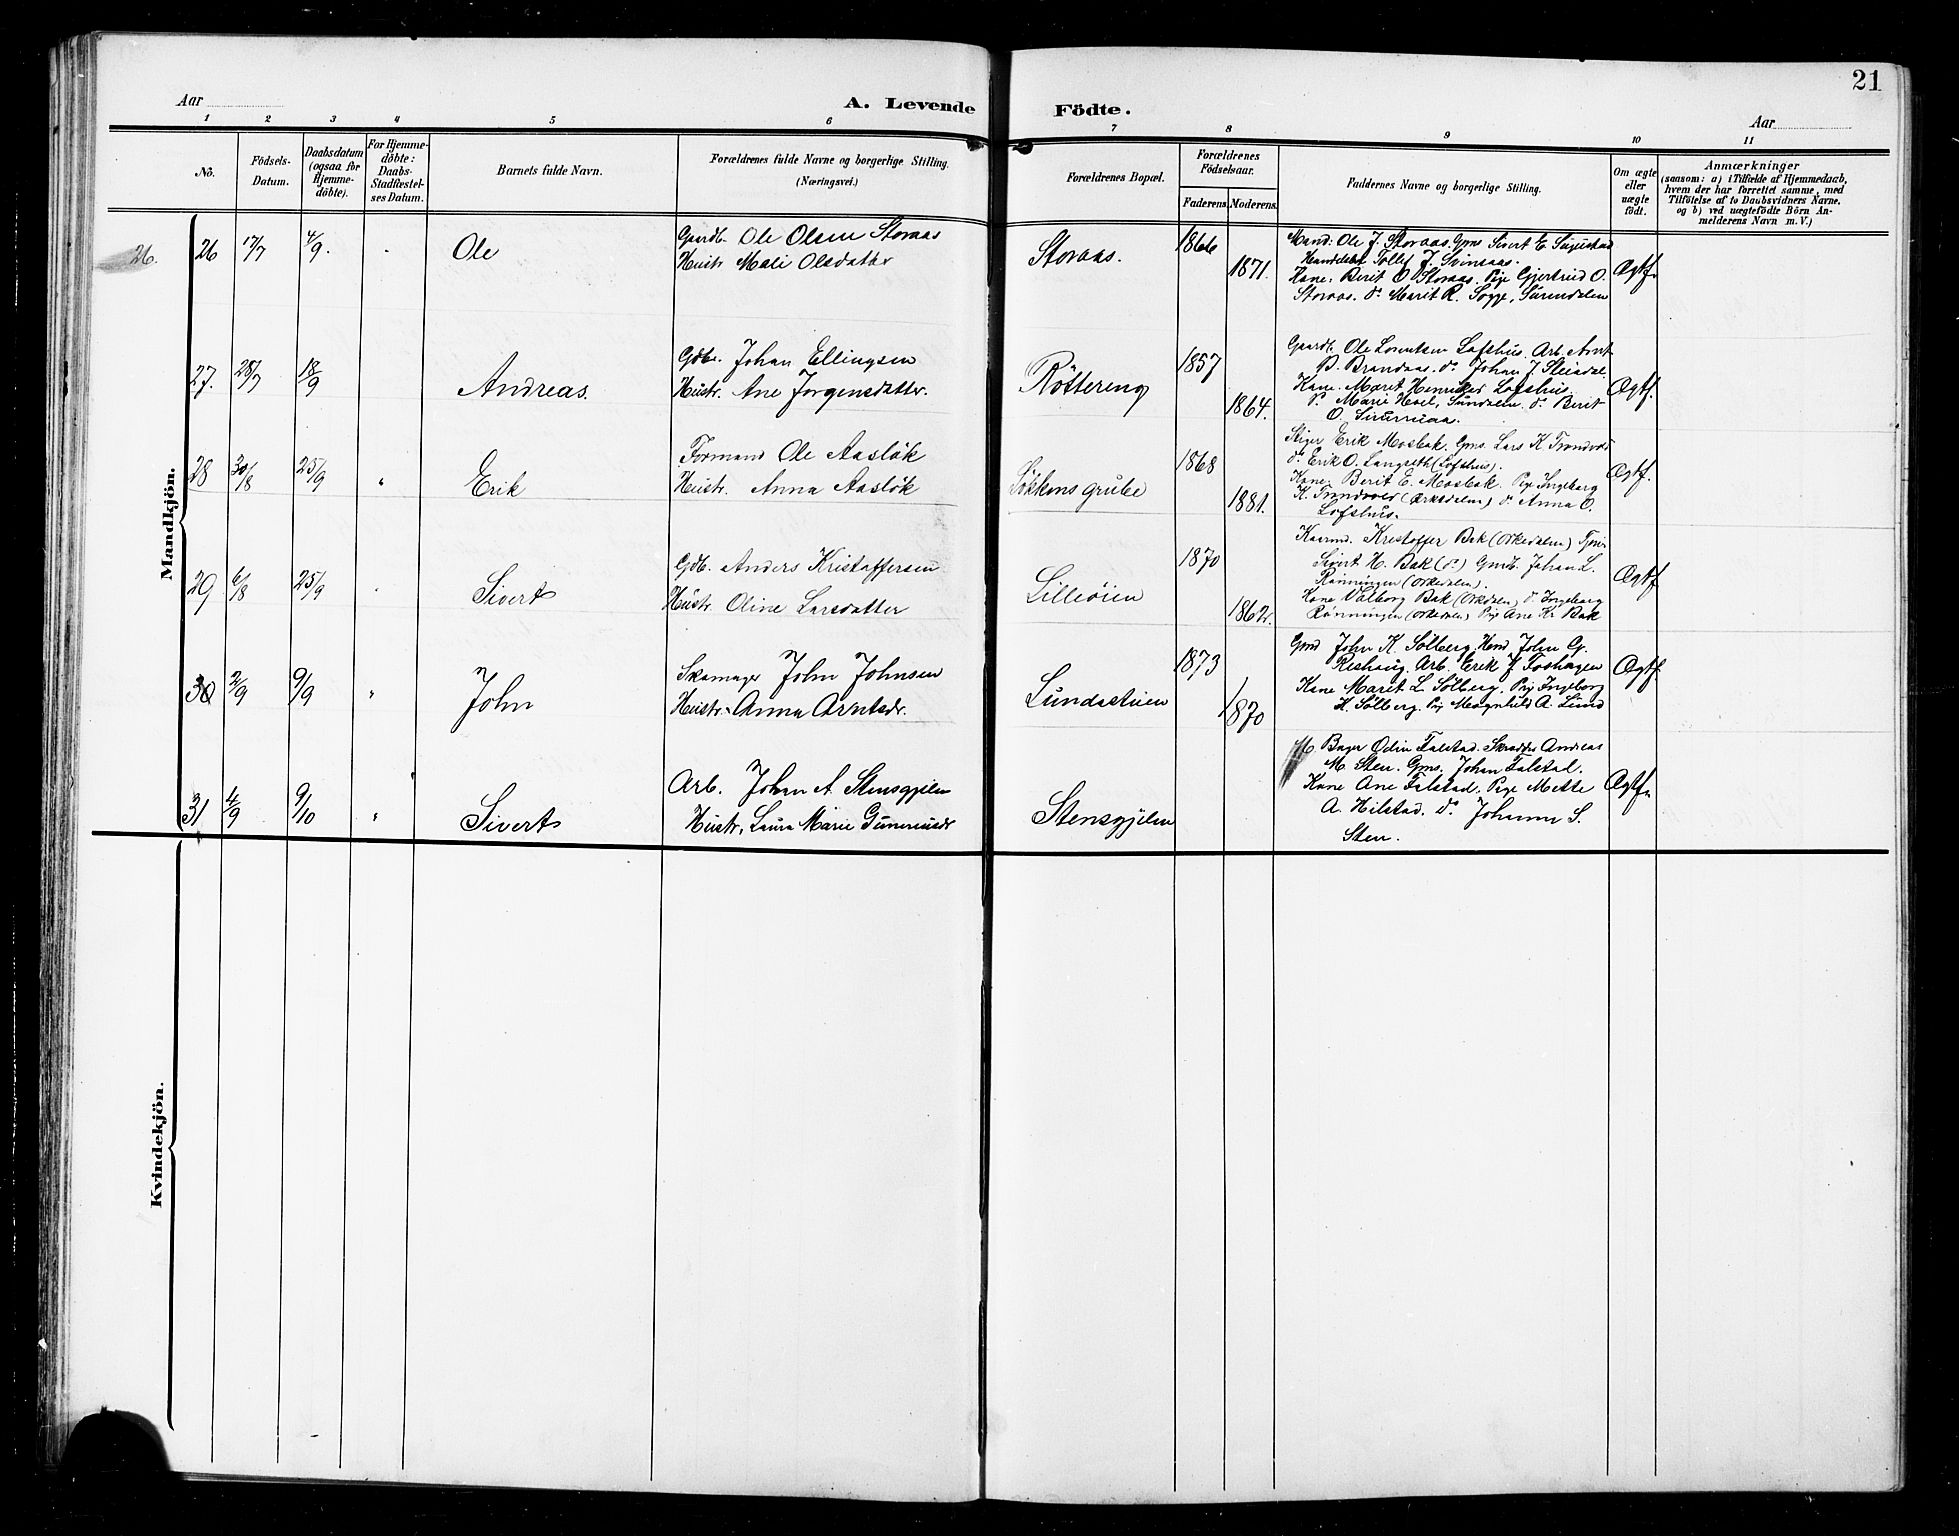 21
Aar
A. Levende Födte.
Aar
1 2 3 4 5 6 7 8 9 10 11
No.
Födsels-Datum.
Daabsdatum (ogsaa for Hjemme-döbte).
For Hjemme-döbte: Daabs-Stadfæstel-ses Datum.
Barnets fulde Navn.
Forældrenes fulde Navne og borgerlige Stilling.
(Næringsvei.)
Forældrenes Bopæl.
Forældrenes Födselsaar.
Faderens. Moderens.
Faddernes Navne og borgerlige Stilling.
Om ægte eller uægte födt.
Anmærkninger
(saasom: a) i Tilfælde af Hjemmedaab,
hvem der har forrettet samme, med
Tilföielse af to Daabsvidners Navne,
og b) ved uægtefödte Börn An-
melderens Navn m. V.)
Mandkjön.
26.
26 17/7 4/9. Ole
Gaardb. Ole Olsen Storaas
Hustr Mali Olsdatter
Storaas.
1866
1871.
Mand: Ole J. Storaas. Gms Sivert E.
Tollef J. Svinsaas.
Kone, Berit O. Storaas. Pige Gjertrud O.
Storaas. do Marit R. Sogge, Surendalen
Ægtf.
27. 28/7 18/9 Andreas.
Gdb. Johan Ellingsen
Hustr. Ane Jorgensdatter.
Röttereng
1857
1864.
Gaardb. Ole Lorentsen Lofshus. Arb. Arnt
B. Brandaas. do Johan J.
Kone. Marit Henriksd Lofshus.
do Marie Hoel, Sundalen. do Berit
O.
Ægtf.
28 30/8 25/9 " Erik
Formand Ole Aasløk
Hustr. Anna Aasløk
Løkkens grube
1868
1881.
Stiger Erik Mosbak. Gms. Lars K
do Erik O. Langseth (Lofshus).
Kone, Berit E. Mosbak. Pige Ingeborg
K. (Orkedalen) do Anna O.
Lofshus.
Ægtf.
29 6/8 25/9 Sivert
Gdb. Anders Kristoffersen
Hustr. Oline Larsdatter
Lilleöien
1870
1862.
Kristoffer Bak (Orkedalen)
Sivert H. Bak (do) Johan L.
Rønningen (Orkedalen).
Kone Valborg Bak (Orkdalen) do Ingeborg
Rønningen (Orkedalen) Pige Ane Kr Bak
Ægtf
30 2/9 9/9 " John
Skomager John Johnsen
Hustr. Anna Arntsdr.
Lundastuen
1873
1870
Gmd John K. Sølberg. John G.
Reshaug. Arb. Erik J
Kone Marit L Sølberg. Pig Ingeborg
K. Sølberg. Pig Magnhild A. Lund
Ægtf.
31 4/9 9/10 " Sivert
Arb. Johan A Stensgjelen
Hustr. Laura Marie
Stensgjelen
Bager Odin Falstad. Andreas
M. Sten. Gms. Johan Falstad.
Kone Ane Falstad. Pige Mette
A. Hilstad. do S.
Sten.
Ægtf.
Kvindekjön.